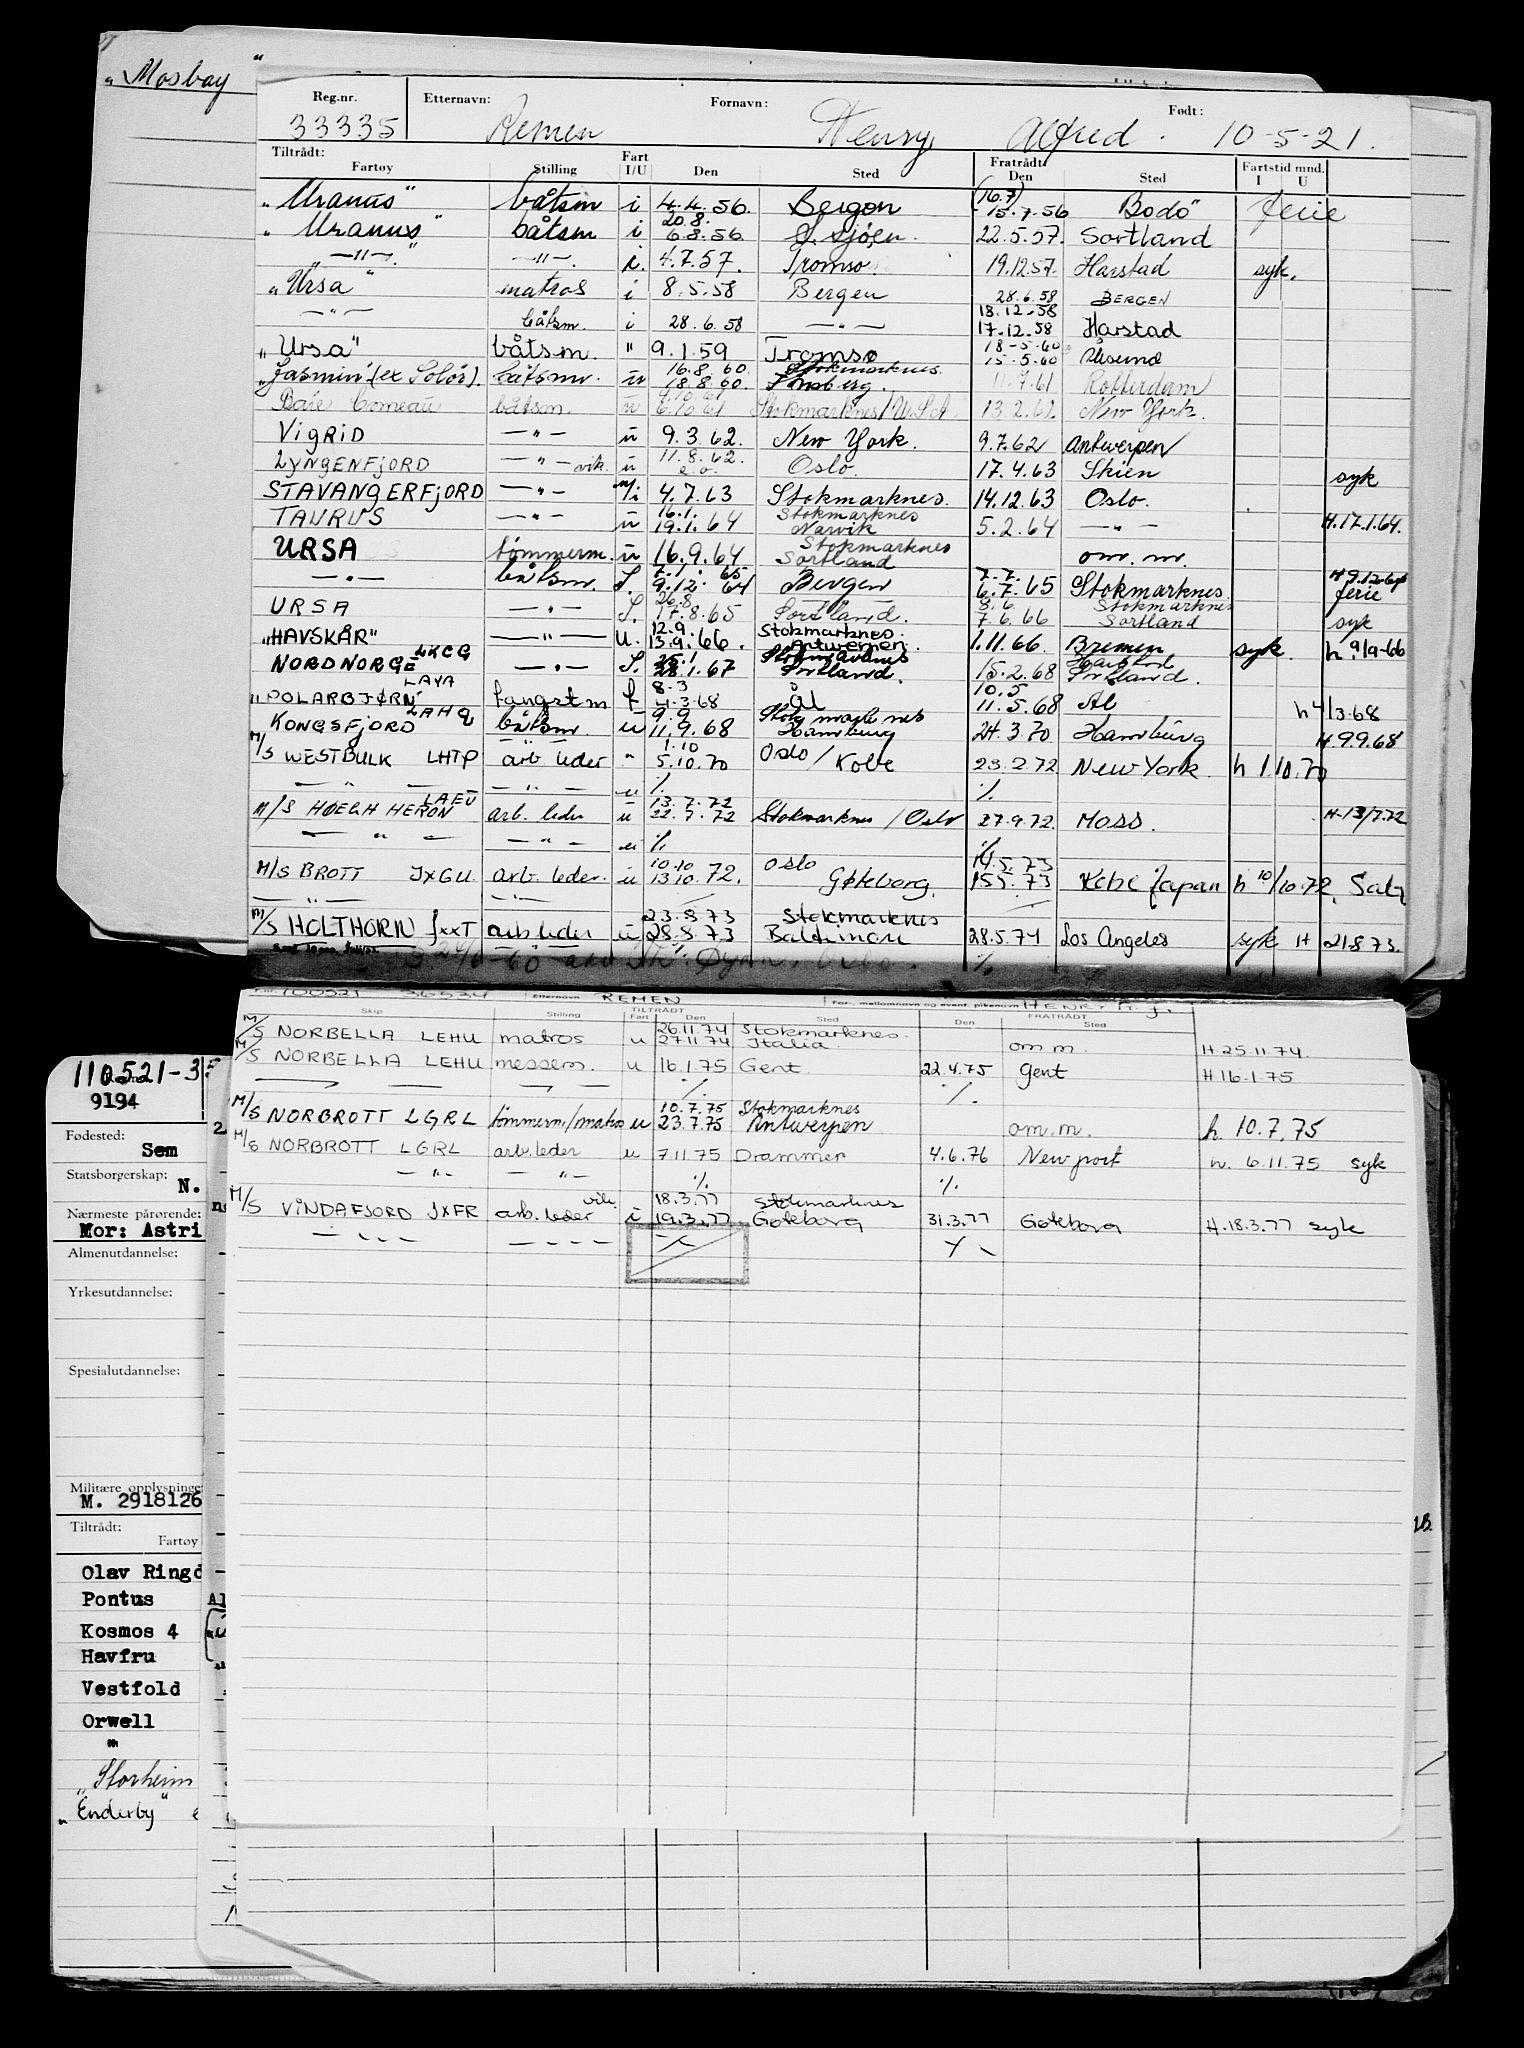 „Mosbay"
Reg.nr. Etternavn: Fornavn: Født:
33335 Remen Henry Alfred. 10-5-21.
Tiltrådt: Fratrådt
Fartøy Stilling Fart I/U Den Sted Den Sted Fartstid mnd. I U
(16.7)
„Uranus" båtsm i 4.4.56. Bergen 15.7.56 Bodø ferie
20.8.
„Uranus" båtsm i 6.8.56. 22.5.57. Sortland
—"—. —"—. i. 4.7.57. Tromsø. 19.12.57. Harstad syk.
„Ursa" matros i 8.5.58 Bergen 28.6.58 BERGEN
18.12-58
—"— båtsm. i 28.6.58 —"— 17.12.58 Harstad
18-5-60
„Ursa" båtsm. " 9.1.59 Tromsø 15-5.60 Ålesund
16.8.60. Stokmarknes.
„Jasmin" (ex Solør). båtsm. u 18.8.60. Tønsberg. 11.7.61 Rotterdam
4.10.61
Baie Comeau båtsm. u 6.10.61 Stokmarknes/U.S.A. 13.2.62. New York.
VIGRID —"— u 9.3.62. New York. 9.7.62 Antwerpen
11.8.62.
LYNGENFJORD —"— vik. u e.o. Oslo. 17.4.63 Skien syk
STAVANGERFJORD —"— u/i 4.7.63 Stokmarknes. 14.12.63 Oslo.
16.1. Stokmarknes
TAURUS —"— u 19.1.64 Narvik 5.2.64 —"— H.17.1.64.
Stokmarknes
URSA tømmerm. u 16.9.64 Sortland om.m.
7.1.65 7.7. H 9.12.64
—"— båtsm. S. 9.12.64 Bergen 6.7.65 Stokmarknes. ferie
26.8 8.6. Stokmarknes
URSA —"— S. 17.8.65 Sortland. 7.6.66 Sortland syk
12.9. Stokmarknes.
„HAVSKÅR" LKCG —"— u. 13.9.66. Antwerpen. 1.11.66 Bremen syk. h. 9/9-66
25.1 Stokmarknes Harstad
NORDNORGE LAYA —"— S. 28.1.67 Sortland. 15.2.68 Sortland.
8-3 10.5
„POLARBJØRN" LAHQ fangstm f 4.3.68 Ål 11.5.68 Ål h 4/3.68
9.9 Stokmarknes
KONGSFJORD båtsm. u 11.9.68 Hamburg 24.3.70 Hamburg H.9.9.68
1.10
M/S WESTBULK LHTP arb leder " 5.10.70 Oslo/Kobe 23.2.72 New York. h 1/10.70
— " — — " — u % %
13.7.72
M/S HØEGH HERON LAEU arb. leder u 22.7.72 Stokmarknes/Oslo 27.9.72 MOSS. H-13/7.72
— " — — " — u % %
10.10 14.5.73
M/S BROTT JXGU arb. leder. u 13.10.72. Oslo Gøteborg. 15.5.73 Kobe Japan h 10/10.72.
— " — — " —
23.8.73 Stokmarknes
M/S HOLTHORN JXXT arb leder u 28.8.73 Baltimore 28.5.74 Los Angeles syk H 21.8.73.
100521 36534 Etternavn REMEN For-, mellomnavn og event. pikenavn HENRY A. J.
Skip Stilling TILTRÅDT Fart Den Sted FRATRÅDT Den Sted
26.11.74 Stokmarknes.
M/S NORBELLA LEHU matros u 27.11.74 Italia om m. H 25.11.74.
M/S NORBELLA LEHU messem. u 16.1.75 Gent 22.4.75 Gent H 16.1.75
% %
10.7.75 Stokmarknes
M/S NORBROTT LGRL tømmerm/matros u 23.7.75 Antwerpen om.m. h. 10.7.75
M/S NORBROTT LGRL arb.leder u 7.11.75 Drammen 4.6.76 Newport h. 6.11.75 syk
— " — — " — % %
18.3.77 Stokmarknes
M/S VINDAFJORD JXFR arb.leder vik. i 19.3.77 Gøteborg 31.3.77 Gøteborg H.18.3.77 syk
110521-3
9194
Fødested:
Sem
Statsborgerskap:
N.
Nærmeste pårørende:
Mor: Astri
Almenutdannelse:
Yrkesutdannelse:
Spesialutdannelse:
Militære opplysninge
M. 2918126
Tiltrådt:
Fartøy
Olav Ringd
Pontus
Kosmos 4
Havfru
Vestfold
Orwell
"
„Storheim
„Enderby"